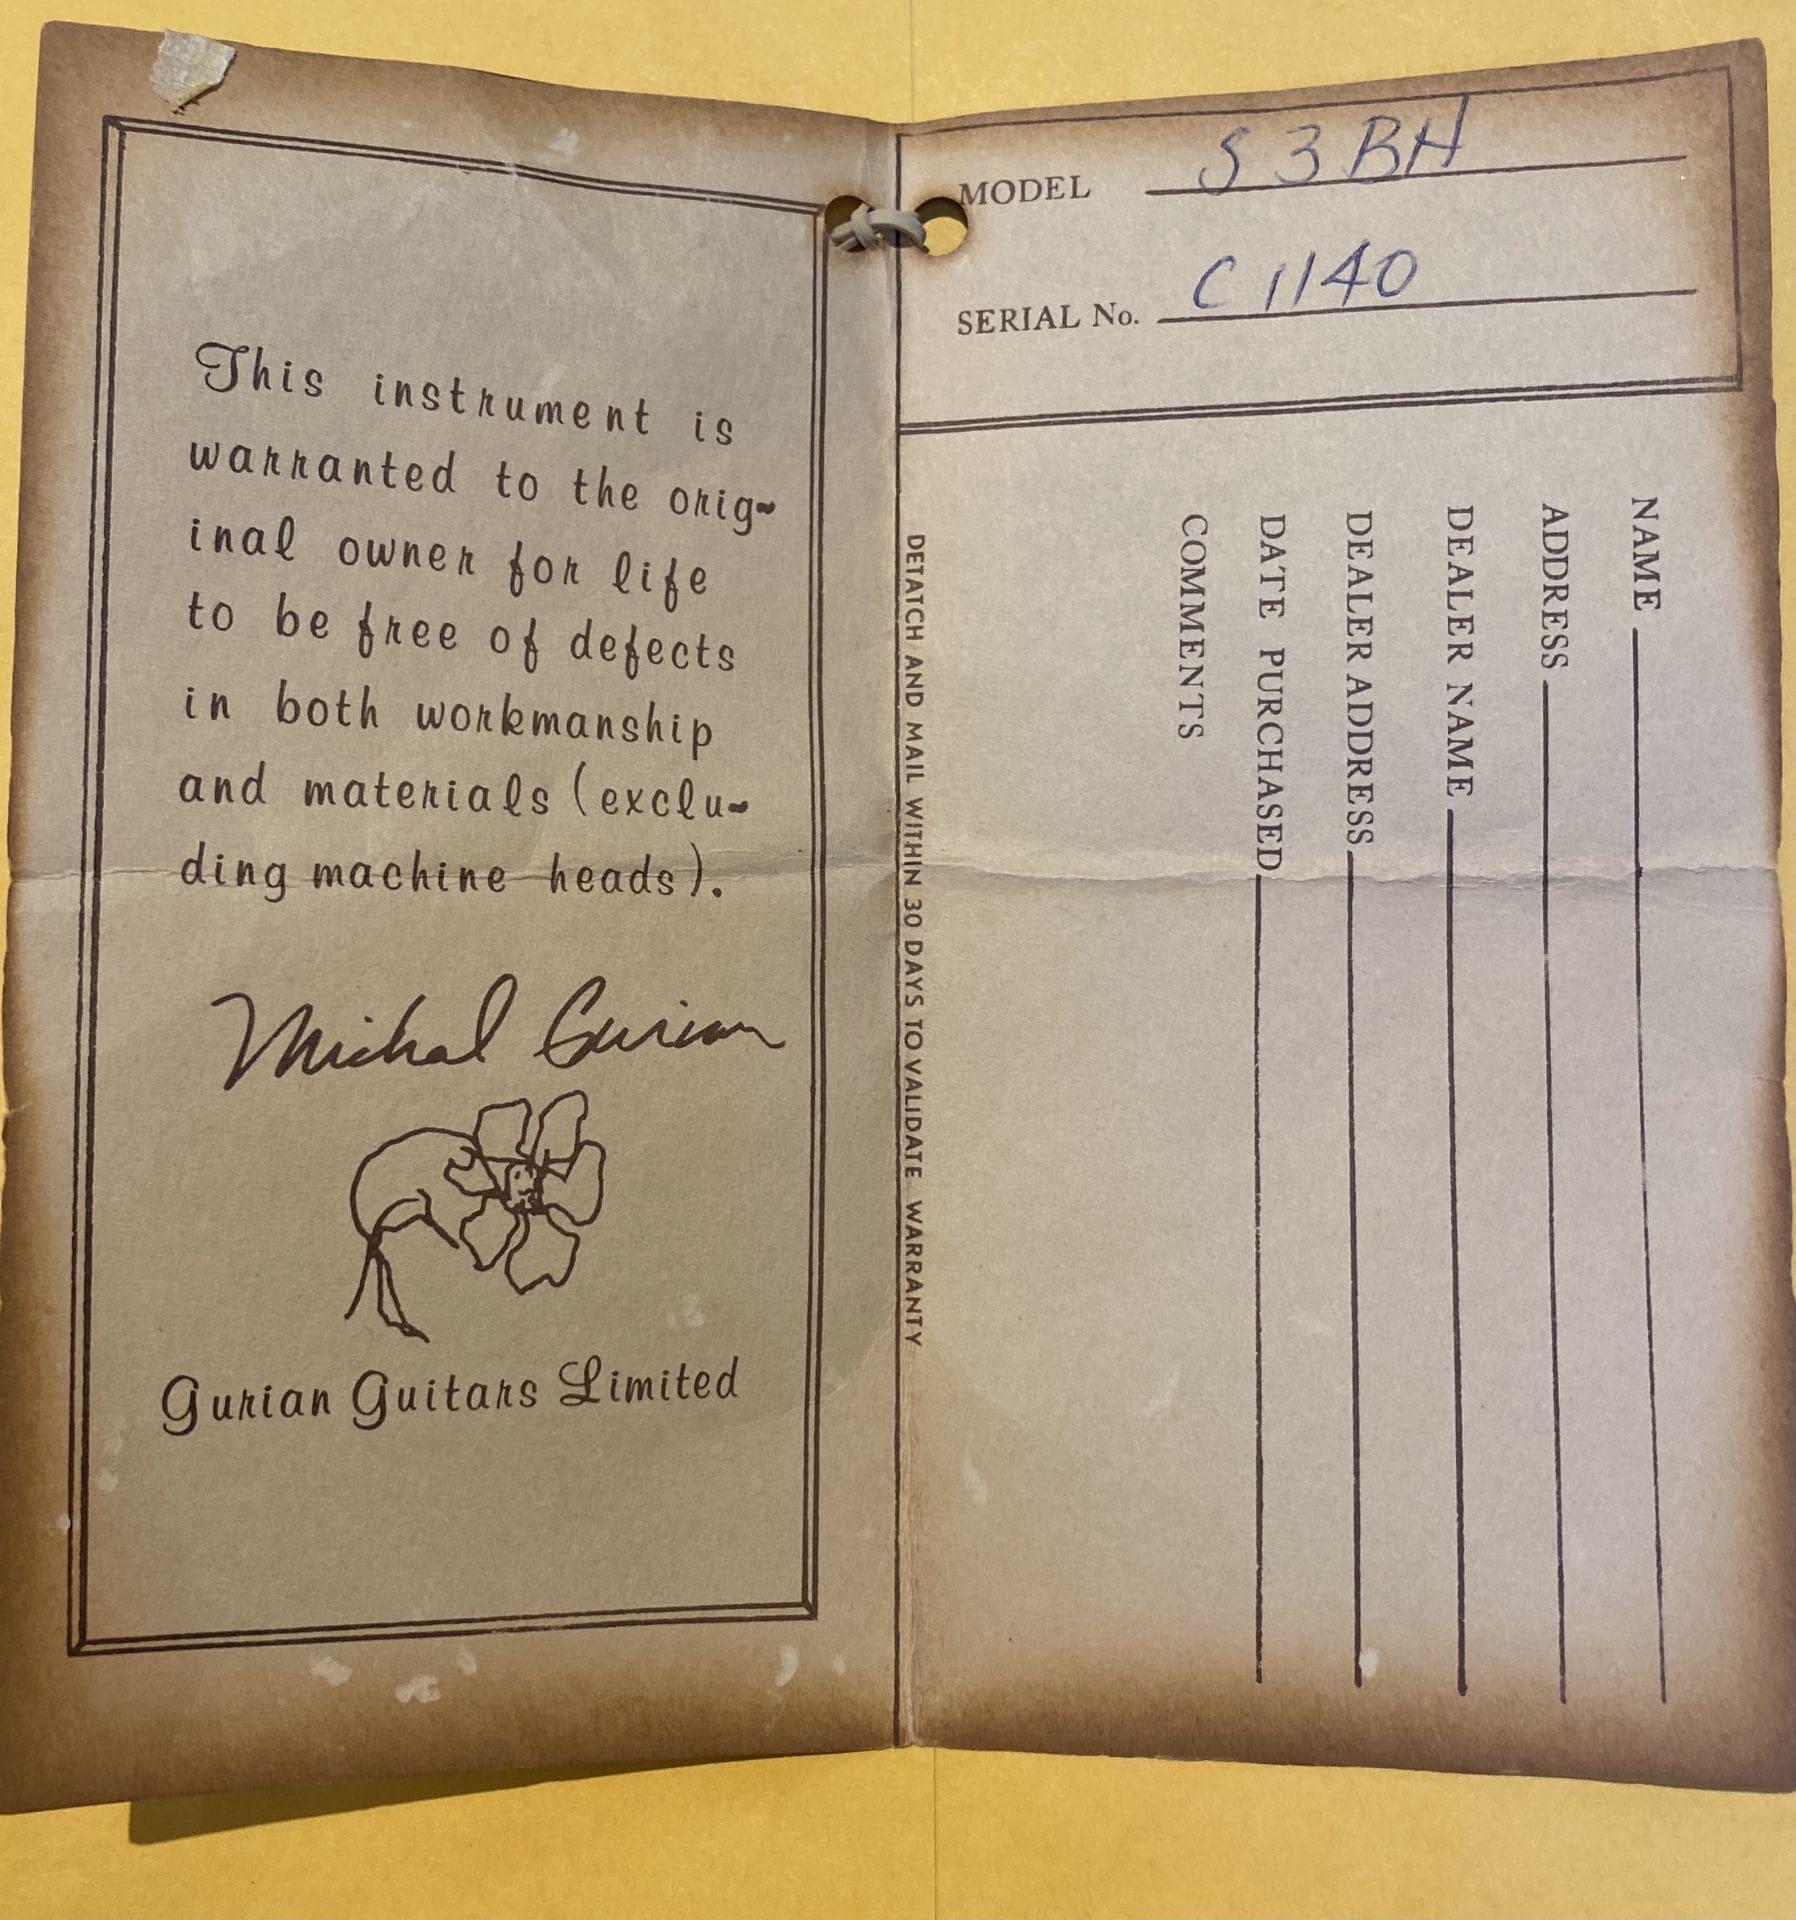 This instrument is
warranted to the orig-
inal owner for life
to be free of defects
in both workmanship
and materials (exclu-
ding machine heads).
Michael Gurian
Gurian Guitars Limited
DETATCH AND MAIL WITHIN 30 DAYS TO VALIDATE WARRANTY
MODEL S3BH
SERIAL No. C1140
NAME
ADDRESS
DEALER NAME
DEALER ADDRESS
DATE PURCHASED
COMMENTS